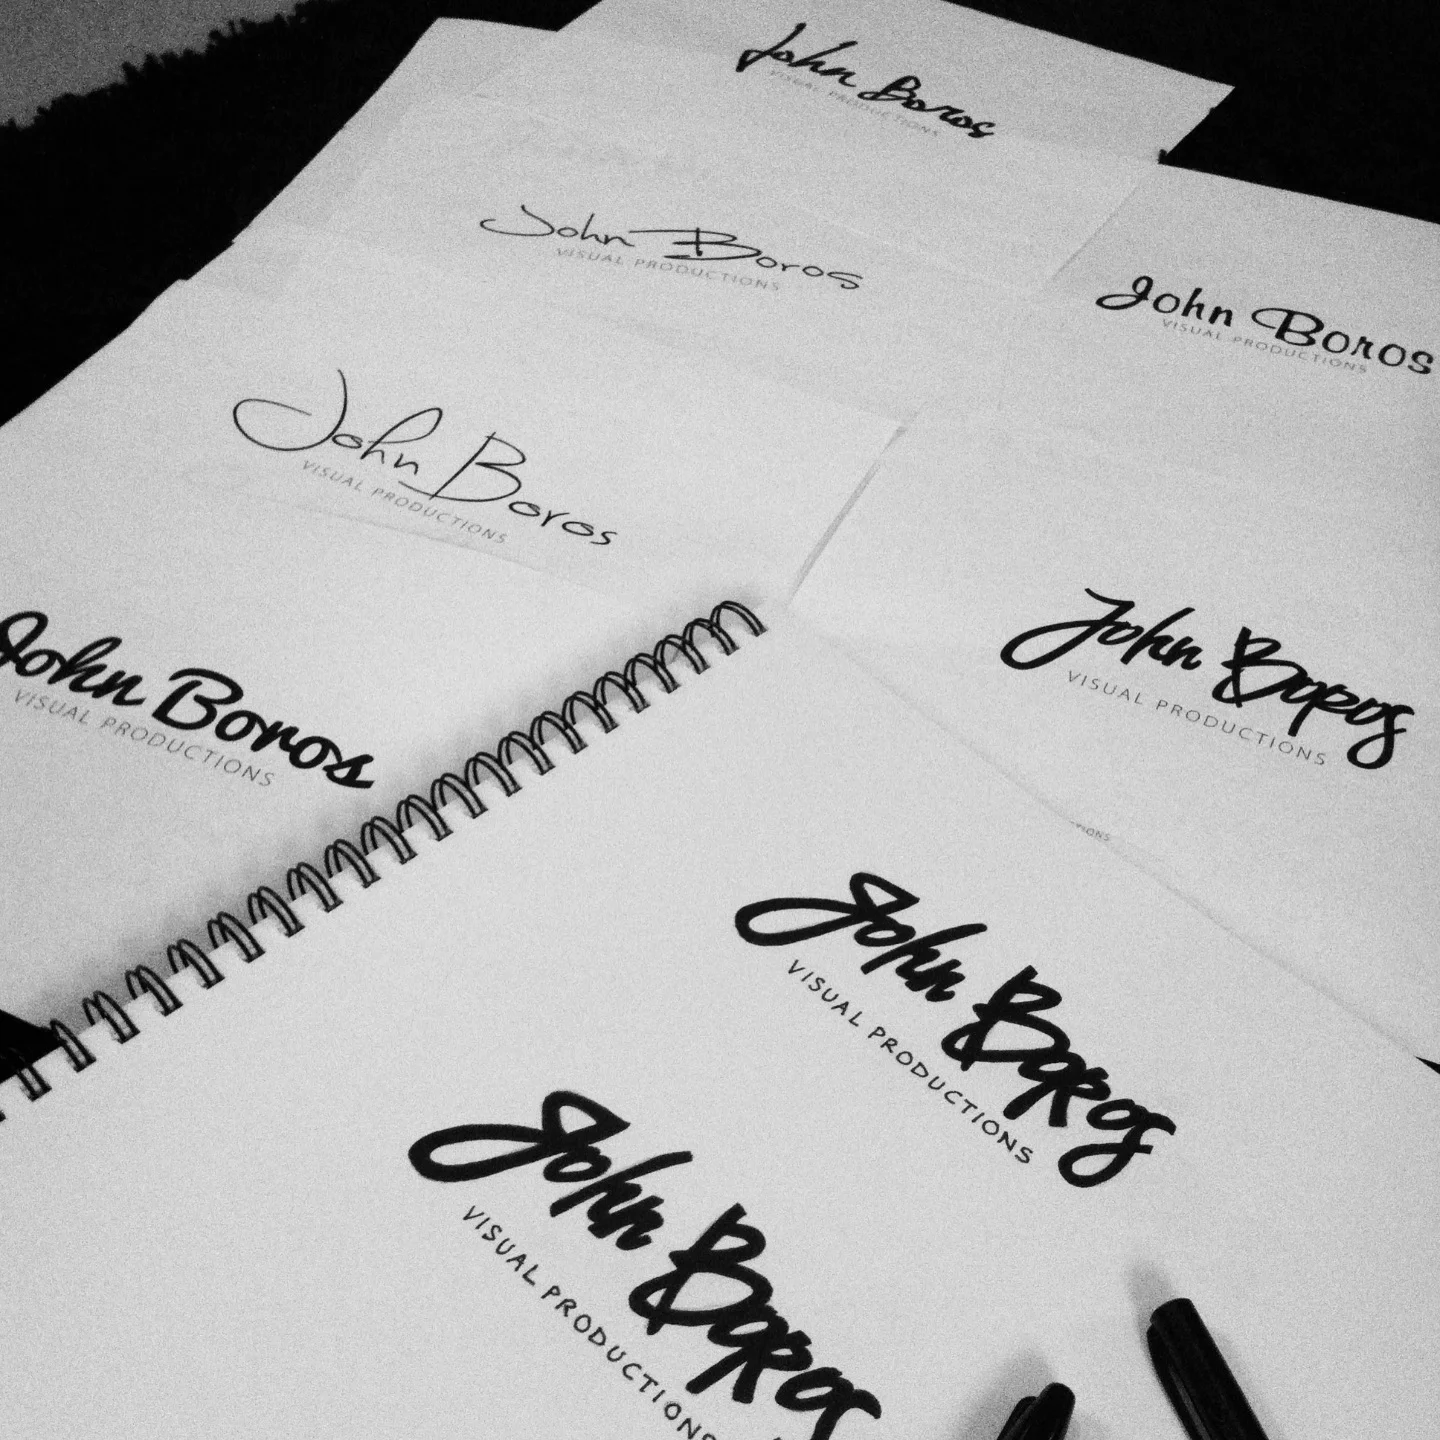 John Boros
VISUAL PRODUCTIONS
John Boros
VISUAL PRODUCTIONS
John Boros
VISUAL PRODUCTIONS
John Boros
VISUAL PRODUCTIONS
John Boros
VISUAL PRODUCTIONS
John Boros
VISUAL PRODUCTIONS
John Boros
VISUAL PRODUCTIONS
John Boros
VISUAL PRODUCTIONS